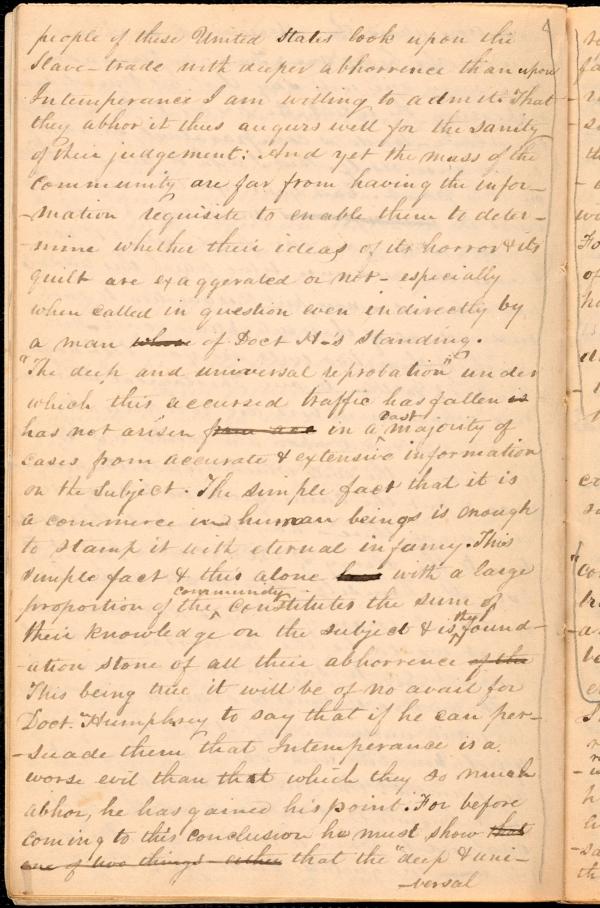 people of these United States look upon the
Slave-trade with deeper abhorrence than upon
Intemperance I am willing to admit. That
they abhor it thus augurs well for the sanity
of their judgement: And yet the mass of the
community are far from having the infor-
-mation requisite to enable them to deter-
-mine whether their ideas of its horror & its
guilt are exaggerated or not - especially
when called in question even indirectly by
a man whose of Doct H-'s standing.
"The deep and universal reprobation" under
which this accursed traffic has fallen is
has not arisen in a vast majority of
cases from accurate & extensive information
on the subject. The simple fact that it is
a commerce in human beings is enough
to stamp it with eternal infamy. This
simple fact & this alone with a large
proportion of the community constitutes the sum of
their knowledge on the subject & is the found-
-ation stone of all their abhorrence of the
This being true it will be of no avail for
Doct. Humphrey to say that if he can per-
-suade them that Intemperance is a
worse evil than that which they so much
abhor, he has gained his point. For before
coming to this conclusion he must show that
one of two things - either that the "deep & uni-
-versal